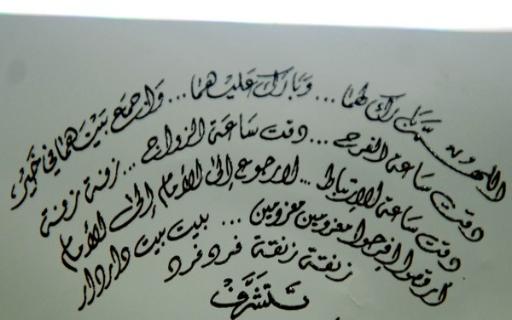 اللهم بارك لهما ... وبارك عليهما ... واجمع بينهما في خير
دقت ساعة الفرح ... دقت ساعة الزواج ... زفنة زفنة
دقت ساعة الارتباط ... لا رجوع إلى الأمام إلى الأمام
ارقصوا افرحوا معزومين معزومين ... بيت بيت دار دار
زنقة زنقة فرد فرد
تتشرف